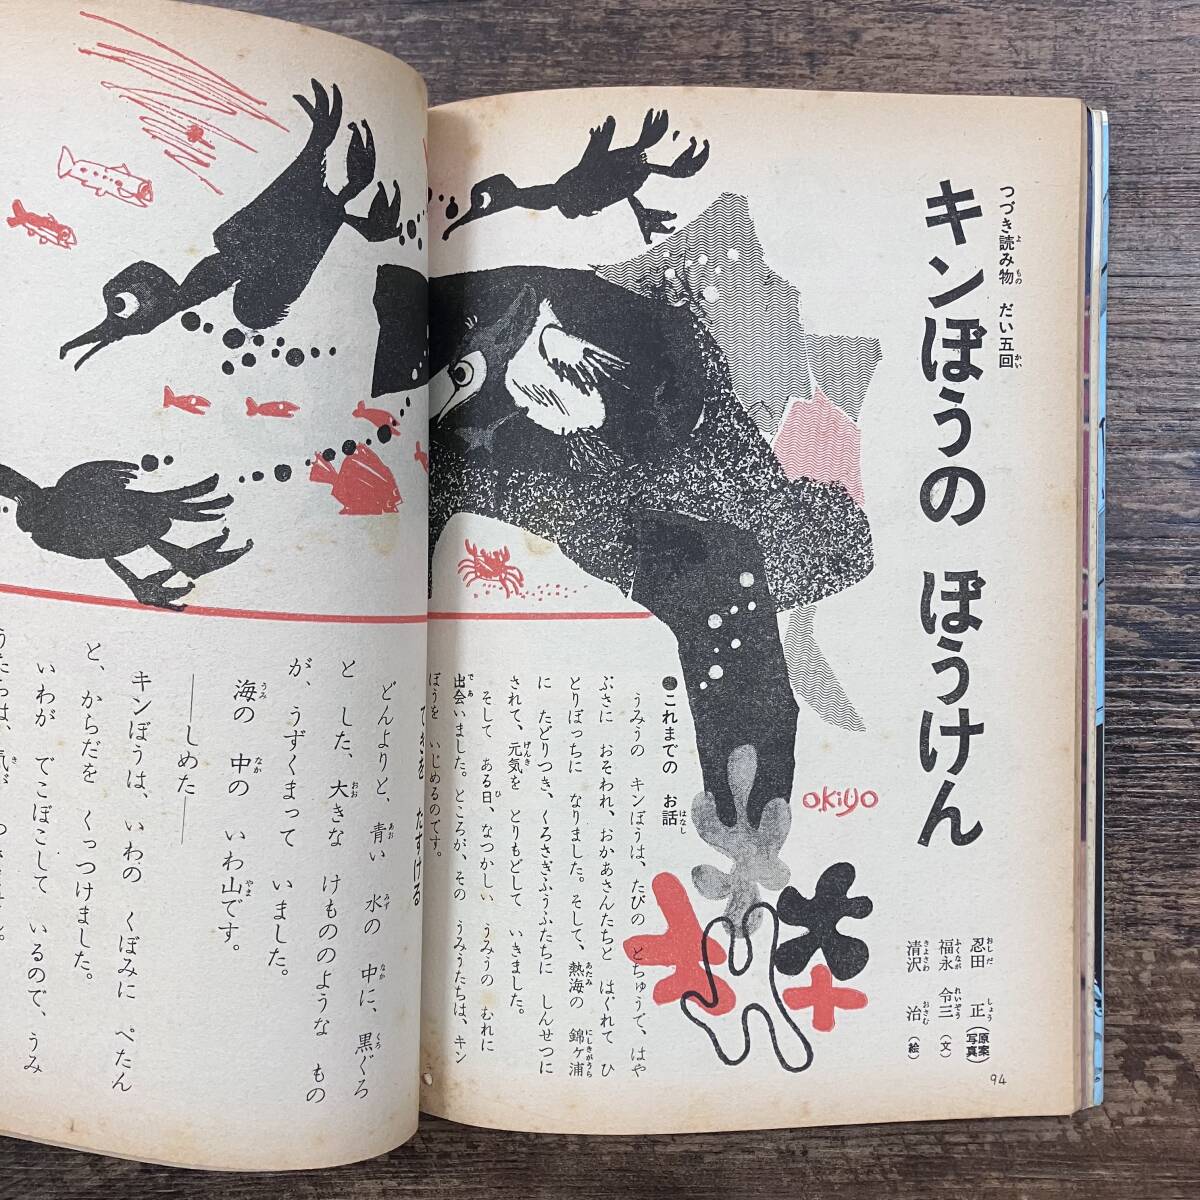 つづき読み物　だい五回
キンぼうの　ぼうけん
忍田　正（原案・写真）
福永　令三（文）
清沢　治（絵）
okiyo
●これまでの　お話
うみうの　キンぼうは、たびの　とちゅうで、はや
ぶさに　おそわれ、おかあさんたちと　はぐれて　ひ
とりぼっちに　なりました。そして、熱海の　錦ヶ浦
に　たどりつき、くろさぎふうふたちに　しんせつに
されて、元気を　とりもどして　いきました。
そして　ある日、なつかしい　うみうの　むれに
出会いました。ところが、その　うみうたちは、キン
ぼうを　いじめるのです。
94
てきを　たすける
どんよりと、青い　水の　中に、黒ぐろ
と　した、大きな　けもののような　もの
が、うずくまって　いました。
海の　中の　いわ山です。
――しめた――
キンぼうは、いわの　くぼみに　ぺたん
と、からだを　くっつけました。
いわが　でこぼこして　いるので、うみ